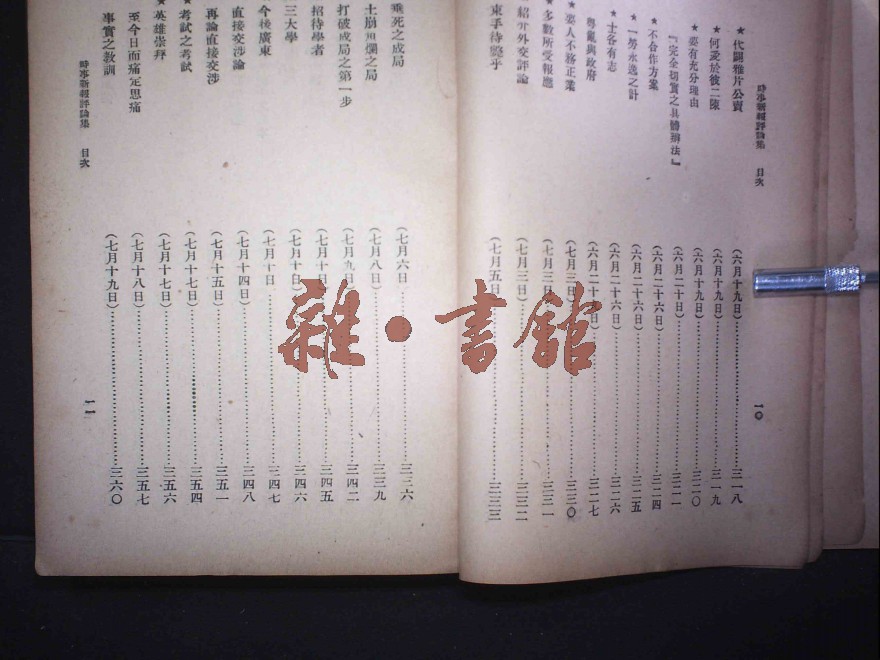 時事新報評論集 目次
★代闢雅片公賣(六月十九日)三一八
★何愛於彼二陳(六月十九日)三一九
★要有充分理由(六月十九日)三二〇
『完全切實之具體辦法』(六月二十日)三二一
★不合作方案(六月二十六日)三二四
★一勞永逸之計(六月二十六日)三二五
★士各有志(六月二十六日)三二六
粵亂與政府(六月二十日)三二七
★要人不務正業(七月二日)三三〇
★多數所受報應(七月三日)三三一
★紹介外交評論(七月三日)三三二
束手待斃乎(七月五日)三三三
一〇
垂死之成局(七月六日)三三六
土崩魚爛之局(七月八日)三三九
打破成局之第一步(七月九日)三四二
招待學者(七月十日)三四五
三大學(七月十日)三四六
今後廣東(七月十日)三四七
直接交涉論(七月十四日)三四八
再論直接交涉(七月十五日)三五一
★考試之考試(七月十七日)三五四
★英雄崇拜(七月十七日)三五六
至今日而痛定思痛(七月十八日)三五七
事實之教訓(七月十九日)三六〇
時事新報評論集 目次
一一
雜·書館